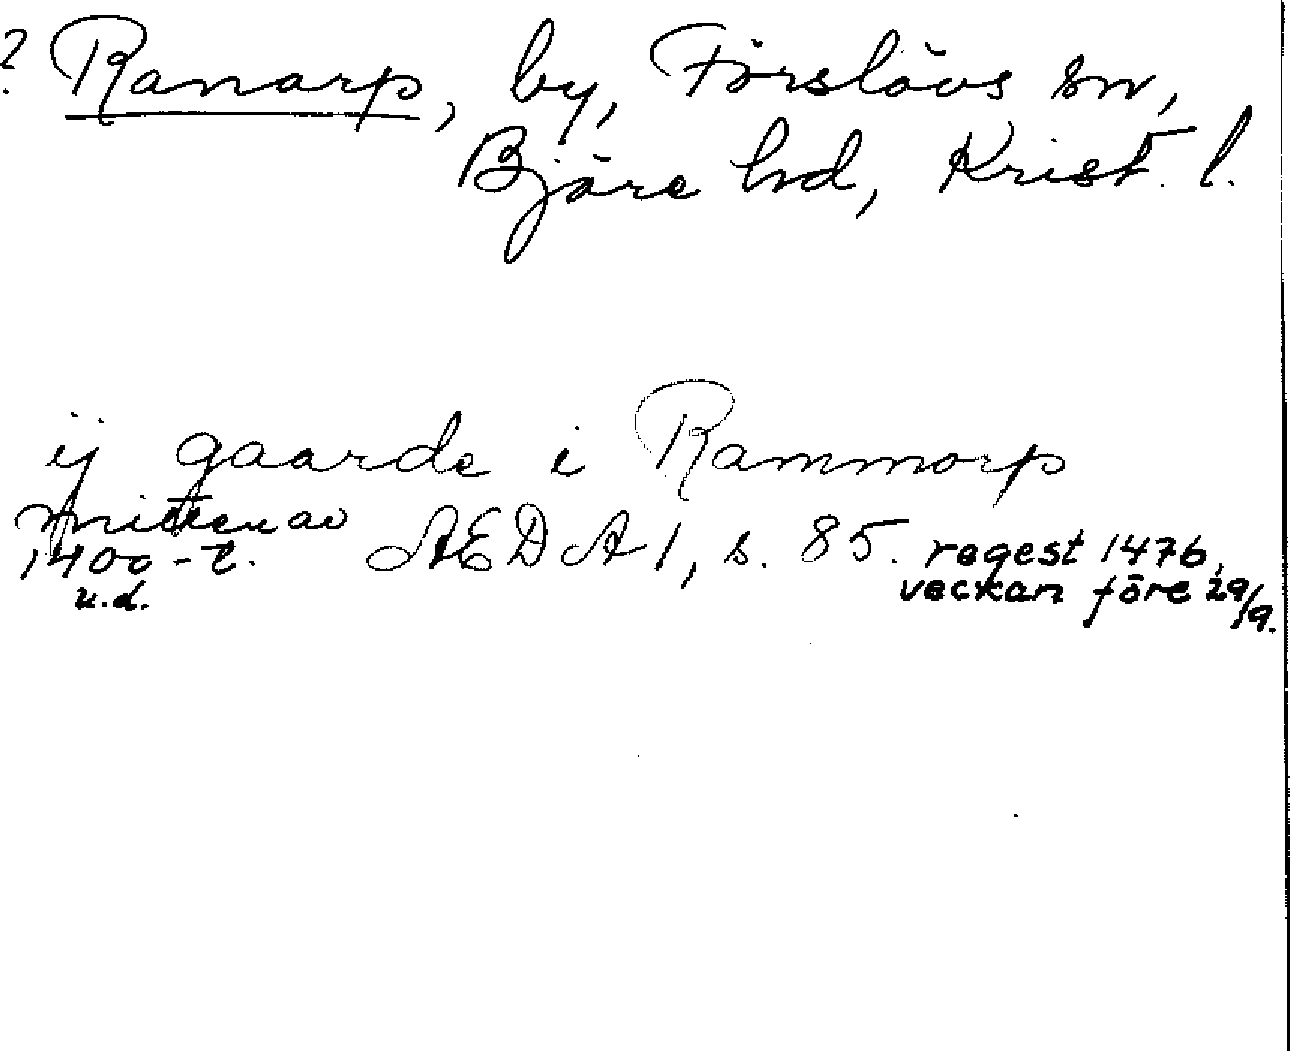 ? Ranarp, by, Förslövs sn,
Bjäre hd, Krist. l.
ij gaarde i Rammorp
mitten av
1400-t. AEDA 1, s. 85. regest 1476,
u.d. veckan före 29/9.